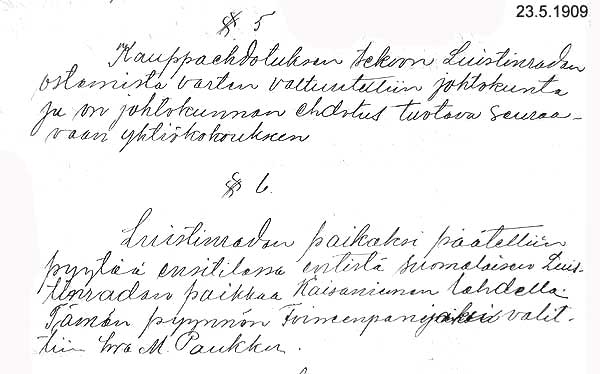 23.5.1909
§ 5
Kauppaehdotuksen tekoon Luistinradan
ostamista varten valtuutettiin johtokunta
ja on johtokunnan ehdotus tuotava seuraa-
vaan yhtiökokoukseen
§ 6.
Luistinradan paikaksi päätettiin
pyytää ensitilassa entistä suomalaisen Luis-
tinradan paikkaa Kaisaniemen lahdella.
Tämän pyynnön toimeenpanijaksi valit-
tiin hra M. Paukku.